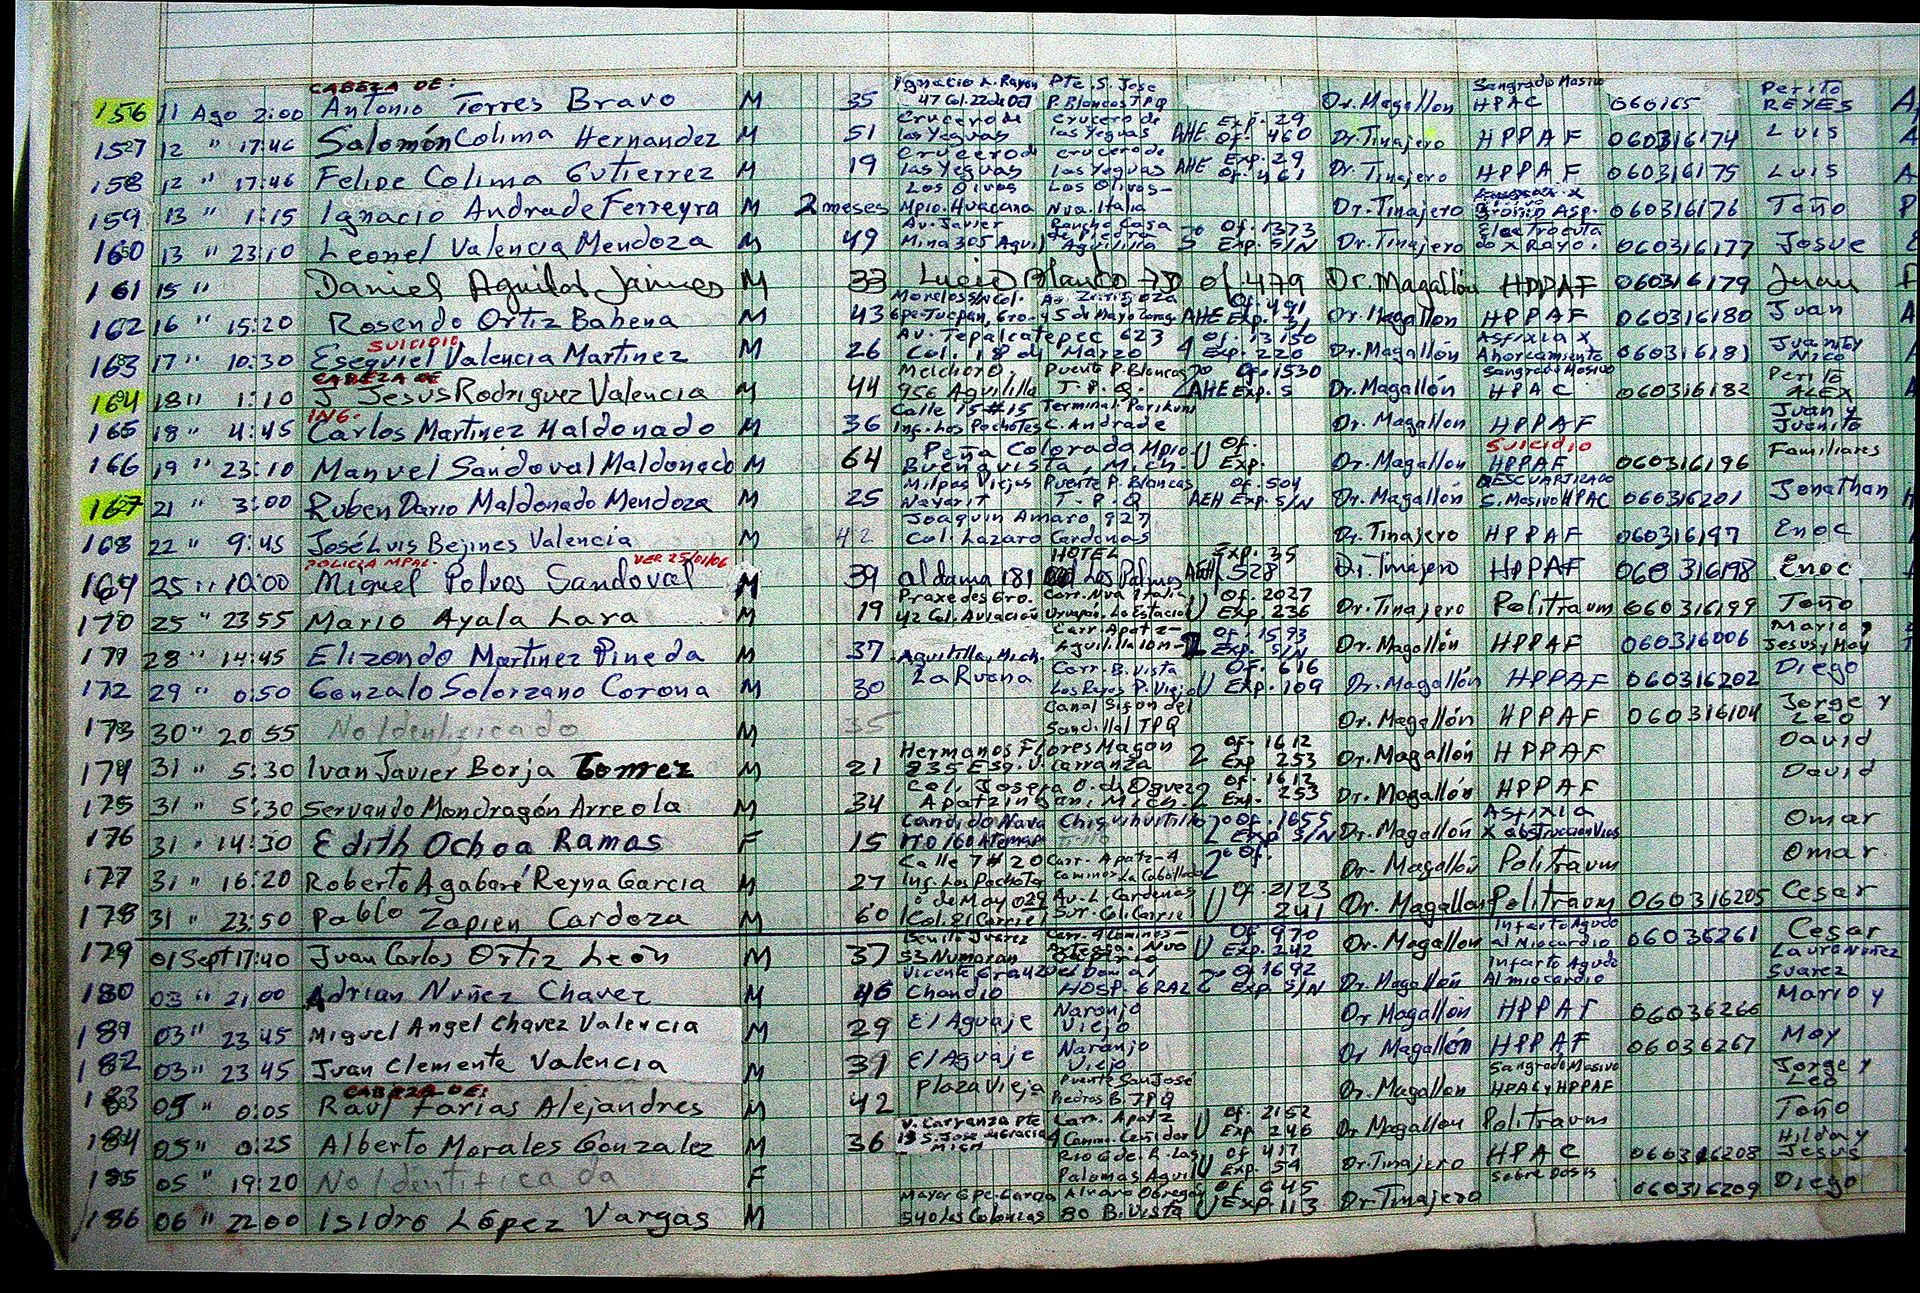 CABEZA DE:
156 11 Ago 2:00 Antonio Torres Bravo M 35 Ignacio L. Rayon 47 Col. 22 de Oct Pte. S. Jose P. Blancas TPQ Dr. Magallon Sangrado Masivo HPAC 060165 Perito REYES
157 12 " 17:46 Salomón Colima Hernandez M 51 Crucero de las Yeguas Crucero de las Yeguas AHE Exp. 29 Of. 460 Dr. Tinajero HPPAF 060316174 Luis
158 12 " 17:46 Felipe Colima Gutierrez M 19 Crucero d las Yeguas Crucero de las Yeguas AHE Exp. 29 Of. 461 Dr. Tinajero HPPAF 060316175 Luis
159 13 " 1:15 Ignacio Andrade Ferreyra M 2 meses Los Olivos Mpio. Huacana Los Olivos- Nva. Italia Dr. Tinajero Asp. 060316176 Toño
160 13 " 23:10 Leonel Valencia Mendoza M 49 Av. Javier Mina 305 Aguil Rancho Casa de Piedra Aguililla Of. 1373 Exp. S/N Dr. Tinajero Electrocuta do x Rayo 060316177 Josue
161 15 " Daniel Aguilar Jaimes M 33 Lucio Blanco of. 479 Dr. Magallón HPPAF 060316179 Juan
162 16 " 15:20 Rosendo Ortiz Bahena M 43 Morelos S/N Col. Av. Zaragoza 5 de Mayo AHE Of. 491 Dr. Magallon HPPAF 060316180 Juan
SUICIDIO
163 17 " 10:30 Esequiel Valencia Martinez M 26 Av. Tepalcatepec 623 Col. 18 de Marzo 4 Of. 13150 Exp. 220 Dr. Magallón Asfixia x Ahorcamiento 060316181 Juan y Nico
CABEZA DE
164 18 " 1:10 J. Jesus Rodriguez Valencia M 44 Melchor O. 956 Aguililla Puente P. Blancas T.P.Q. Of. 1530 AHE Exp. S Dr. Magallón Sangrado Masivo HPAC 060316182 Perito ALEX
ING.
165 18 " 4:45 Carlos Martinez Maldonado M 36 Calle 15 #15 Inf. Los Pochotes Terminal Parikuni C. Andrade Dr. Magallon HPPAF Juan y Juanito
166 19 " 23:10 Manuel Sandoval Maldonado M 64 Peña Colorada Mpio Buenavista, Mich. U Of. Exp. Dr. Magallon SUICIDIO HPPAF 060316196 Familiares
167 21 " 3:00 Ruben Dario Maldonado Mendoza M 25 Milpas Viejas Nayarit Puente P. Blancas T.P.Q AEH Of. 504 Exp. S/N Dr. Magallón DESCUARTIZADO S. Masivo HPAC 060316201 Jonathan
168 22 " 9:45 José Luis Bejines Valencia M 42 Joaquin Amaro 927 Col. Lazaro Cardenas Dr. Tinajero HPPAF 060316197 Enoc
POLICIA MPAL. VER 25/01/06
169 25 " 10:00 Miguel Polvos Sandoval M 39 aldama 181 HOTEL Los Palmas AEH Exp. 35 528 Dr. Tinajero HPPAF 060316198 Enoc
170 25 " 23:55 Mario Ayala Lara M 19 Praxedes Gro. 42 Col. Aviación Carr. Nva Italia Uruapan. La Estacion U Of. 2027 Exp. 236 Dr. Tinajero Politraum 060316199 Toño
171 28 " 14:45 Elizondo Martinez Pineda M 37 Aguililla, Mich. Carr. Apatz- Aguililla 2 Of. 1593 Exp. S/N Dr. Magallón HPPAF 060316006 Mario, Jesus y Moy
172 29 " 0:50 Gonzalo Solorzano Corona M 30 La Ruana Carr. B. Vista Los Reyes P. Viejo U Of. 616 Exp. 109 Dr. Magallón HPPAF 060316202 Diego
173 30 " 20:55 No Identificado M 35 Canal Sifon del Sandillal TPQ Dr. Magallón HPPAF 060316104 Jorge y Leo
174 31 " 5:30 Ivan Javier Borja Torrez M 21 Hermanos Flores Magon 235 Esq. V. Carranza 2 Of. 1612 Exp. 253 Dr. Magallón HPPAF David
175 31 " 5:30 Servando Mondragón Arreola M 34 Col. Josefa O. de Dguez Apatzingan, Mich. 2 Of. 1612 Exp. 253 Dr. Magallón HPPAF David
176 31 " 14:30 Edith Ochoa Ramos F 15 Candido Nava Chiquihuitillo Of. 1655 Exp S/N Dr. Magallón Asfixia x obstruccion Vias Omar
177 31 " 16:20 Roberto Agabaré Reyna Garcia M 27 Calle 7 # 20 Inf. Los Pochotes Carr. Apatz-4 Caminos 2º Of. Dr. Magallón Politraum Omar
178 31 " 23:50 Pablo Zapien Cardoza M 60 Av. L. Cardenas U Of. 2123 241 Dr. Magallon Politraum 060316205 Cesar
179 01 Sept 17:40 Juan Carlos Ortiz León M 37 Benito Juarez 53 Numaran Carr. 4 Caminos- U Of 970 Exp. 242 Dr. Magallon Infarto Agudo al Miocardio 06036261 Cesar
180 03 " 21:00 Adrian Nuñez Chavez M 46 Vicente Chandio HOSP. GRAL 2º Of 1692 Exp. S/N Dr. Magallón Infarto Agudo Al miocardio Laura Nuñez Suarez
181 03 " 23:45 Miguel Angel Chavez Valencia M 29 El Aguaje Naranjo Viejo Dr Magallón HPPAF 06036266 Mario y
182 03 " 23:45 Juan Clemente Valencia M 31 El Aguaje Naranjo Viejo Dr Magallón HPPAF 06036267 Moy
CABEZA DE:
183 05 " 0:05 Raul Farias Alejandres M 42 Plaza Vieja Puente San José Piedras B. TPQ Dr. Magallon Sangrado Masivo HPAC y HPPAF Jorge y Leo
184 05 " 0:25 Alberto Morales Gonzalez M 36 V. Carranza Pte 13 S. Jose de Gracia Mich Carr. Apatz U Of. 2152 Exp. 246 Dr Magallon Politraum Toño
185 05 " 19:20 No Identificada F Palomas Aguil U Of 417 Exp. 54 Dr. Tinajero HPAC 060316208 Hilda y Jesus
186 06 " 22:00 Isidro López Vargas M 540 Las Colonias Alvaro Obregon 80 B. Vista U Of 645 Exp. 113 Dr. Tinajero Sobre Dosis 060316209 Diego